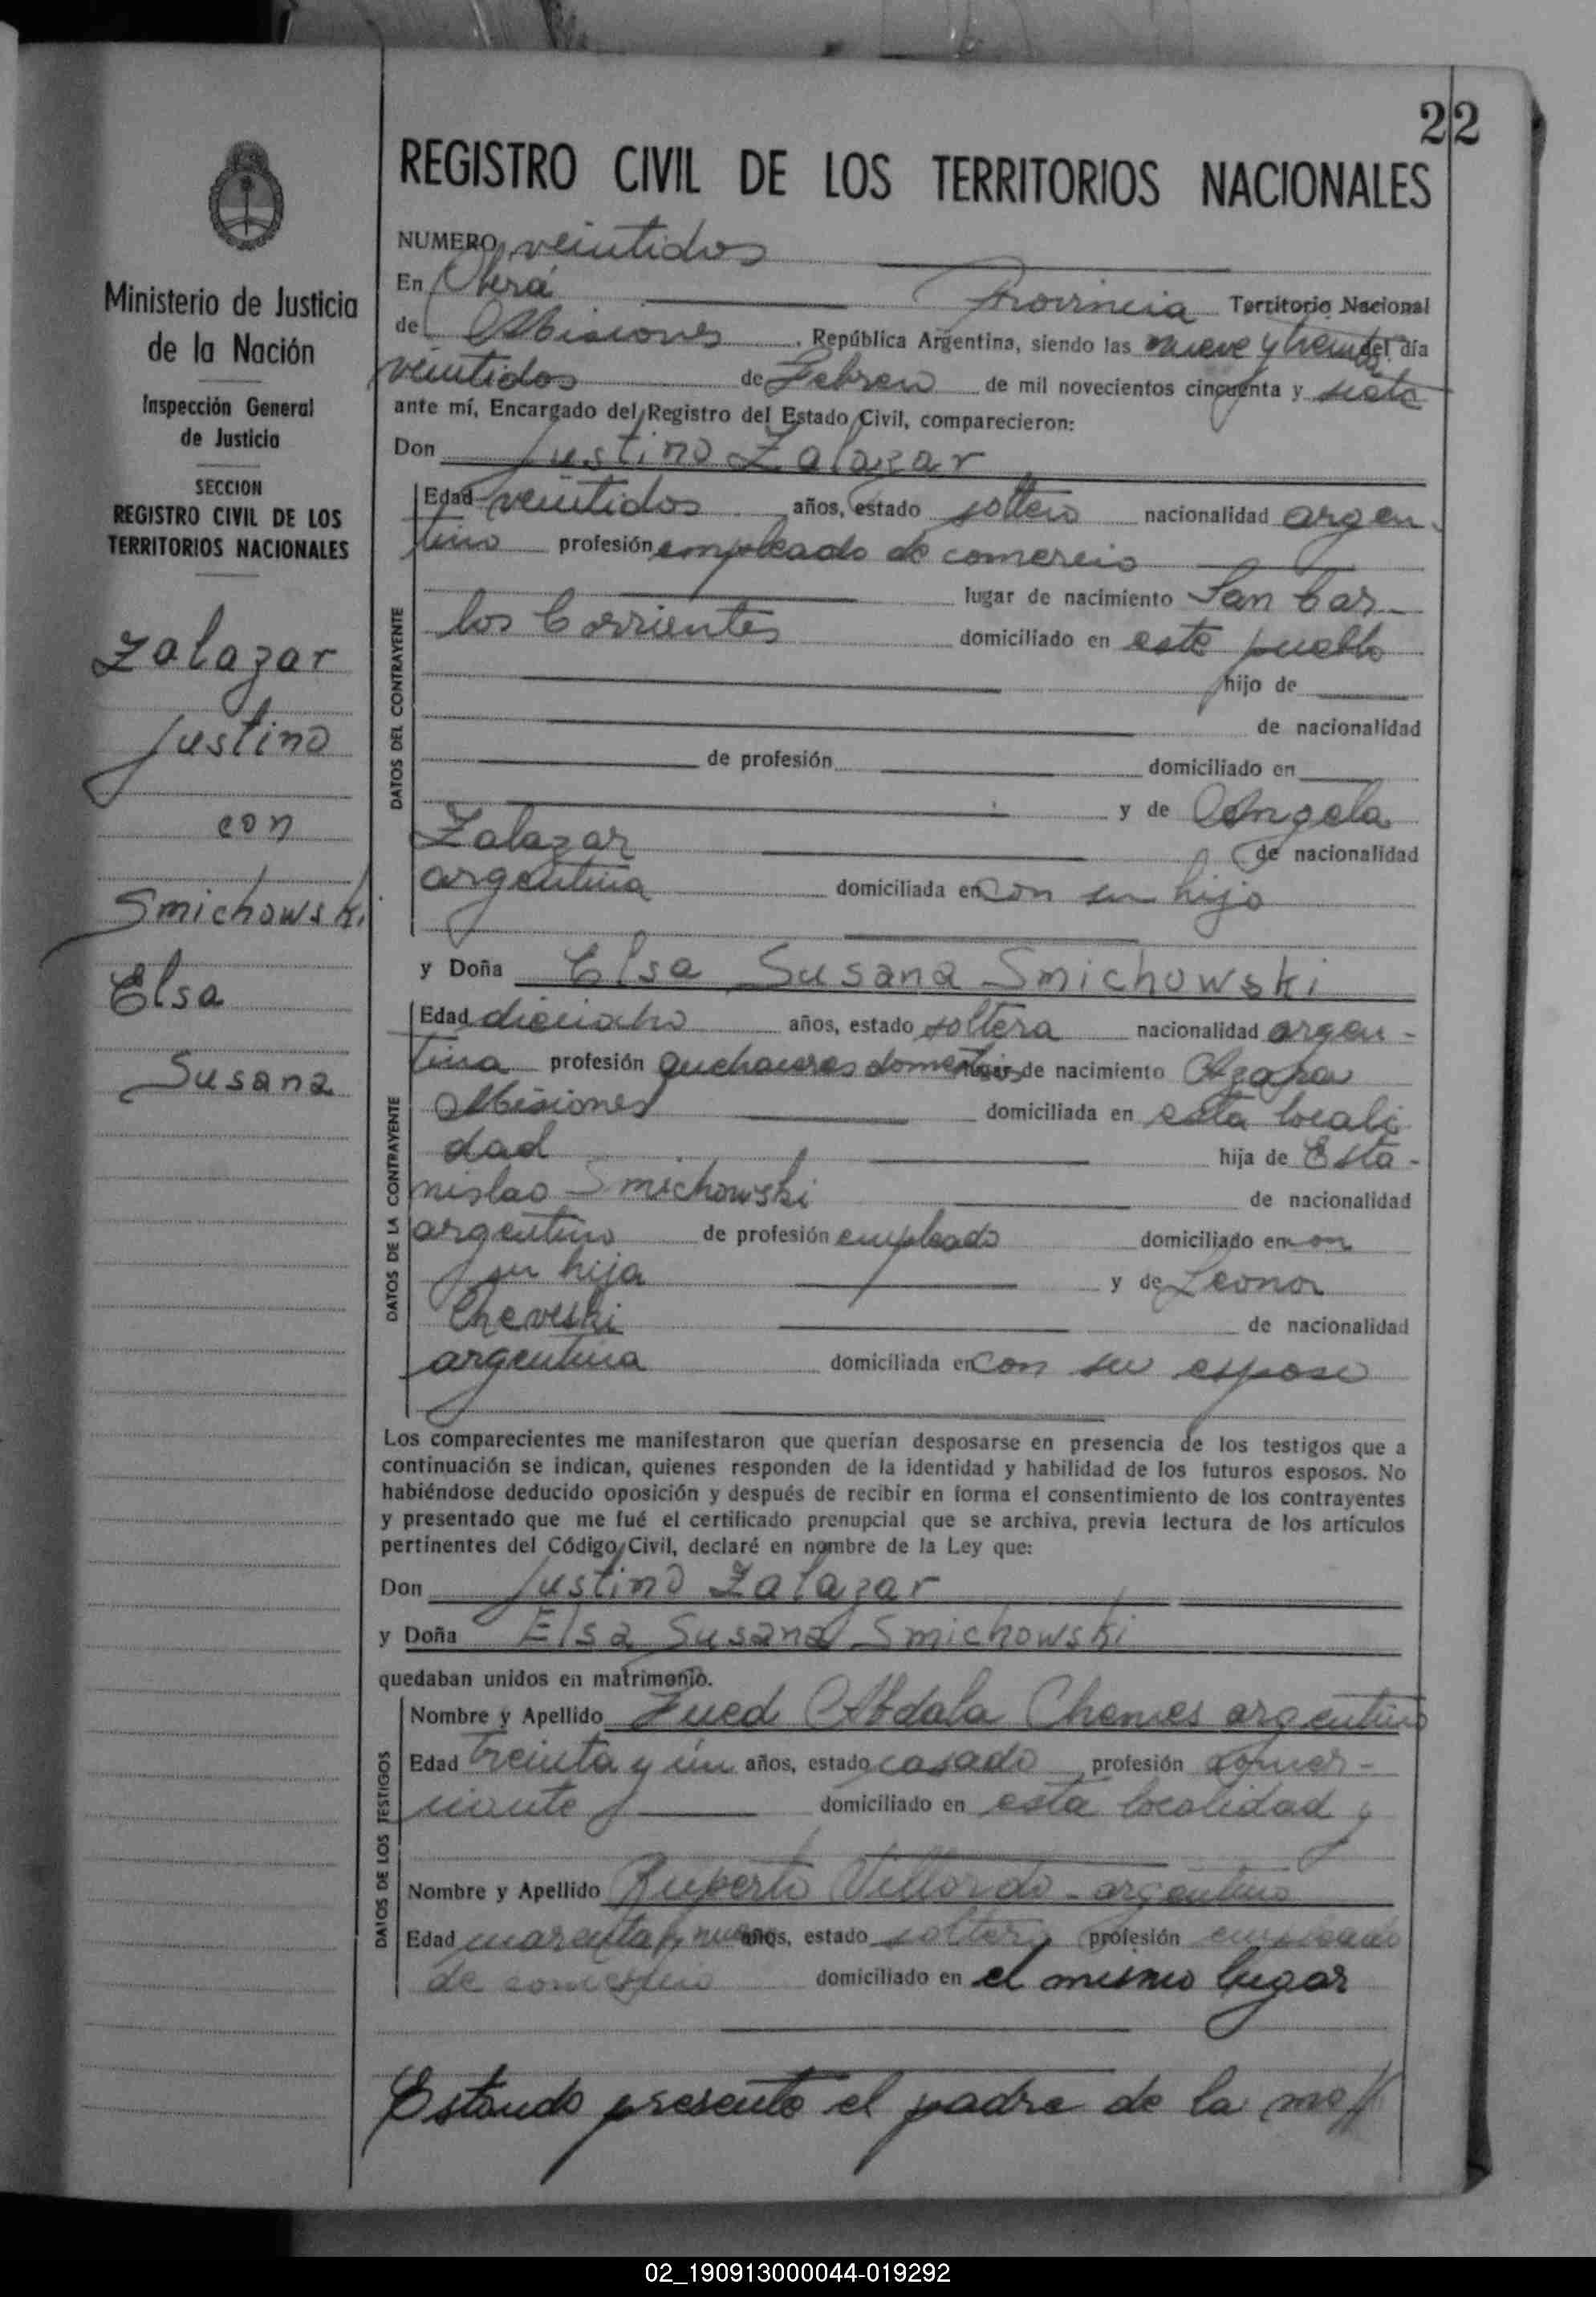 22
REGISTRO CIVIL DE LOS TERRITORIOS NACIONALES
Ministerio de Justicia
de la Nación
Inspección General
de Justicia
SECCION
REGISTRO CIVIL DE LOS
TERRITORIOS NACIONALES
Zalazar
Justino
con
Smichowski
Elsa
Susana
NUMERO veintidos
En Oberá Provincia Territorio Nacional
de Misiones, República Argentina, siendo las nueve y treinta del día
veintidos de Febrero de mil novecientos cincuenta y siete
ante mí, Encargado del Registro del Estado Civil, comparecieron:
Don Justino Zalazar
DATOS DEL CONTRAYENTE
Edad veintidos años, estado soltero nacionalidad argen-
tino profesión empleado de comercio
lugar de nacimiento San Car-
los Corrientes domiciliado en este pueblo
hijo de
de nacionalidad
de profesión domiciliado en
y de Angela
Zalazar de nacionalidad
argentina domiciliada en con su hijo
y Doña Elsa Susana Smichowski
DATOS DE LA CONTRAYENTE
Edad dieciocho años, estado soltera nacionalidad argen-
tina profesión quehaceres domesticos lugar de nacimiento Azara
Misiones domiciliada en esta locali
dad hija de Esta-
nislao Smichowski de nacionalidad
argentino de profesión empleado domiciliado en con
su hija y de Leonor
Cheveski de nacionalidad
argentina domiciliada en con su esposo
Los comparecientes me manifestaron que querían desposarse en presencia de los testigos que a
continuación se indican, quienes responden de la identidad y habilidad de los futuros esposos. No
habiéndose deducido oposición y después de recibir en forma el consentimiento de los contrayentes
y presentado que me fué el certificado prenupcial que se archiva, previa lectura de los artículos
pertinentes del Código Civil, declaré en nombre de la Ley que:
Don Justino Zalazar
y Doña Elsa Susana Smichowski
quedaban unidos en matrimonio.
DATOS DE LOS TESTIGOS
Nombre y Apellido Fued Abdala Chemes argentino
Edad treinta y un años, estado casado profesión comer-
ciante domiciliado en esta localidad y
Nombre y Apellido Ruperto Villordo - argentino
Edad cuarenta y nueve años, estado soltero profesión empleado
de comercio domiciliado en el mismo lugar
Estando presente el padre de la me//
02_190913000044-019292